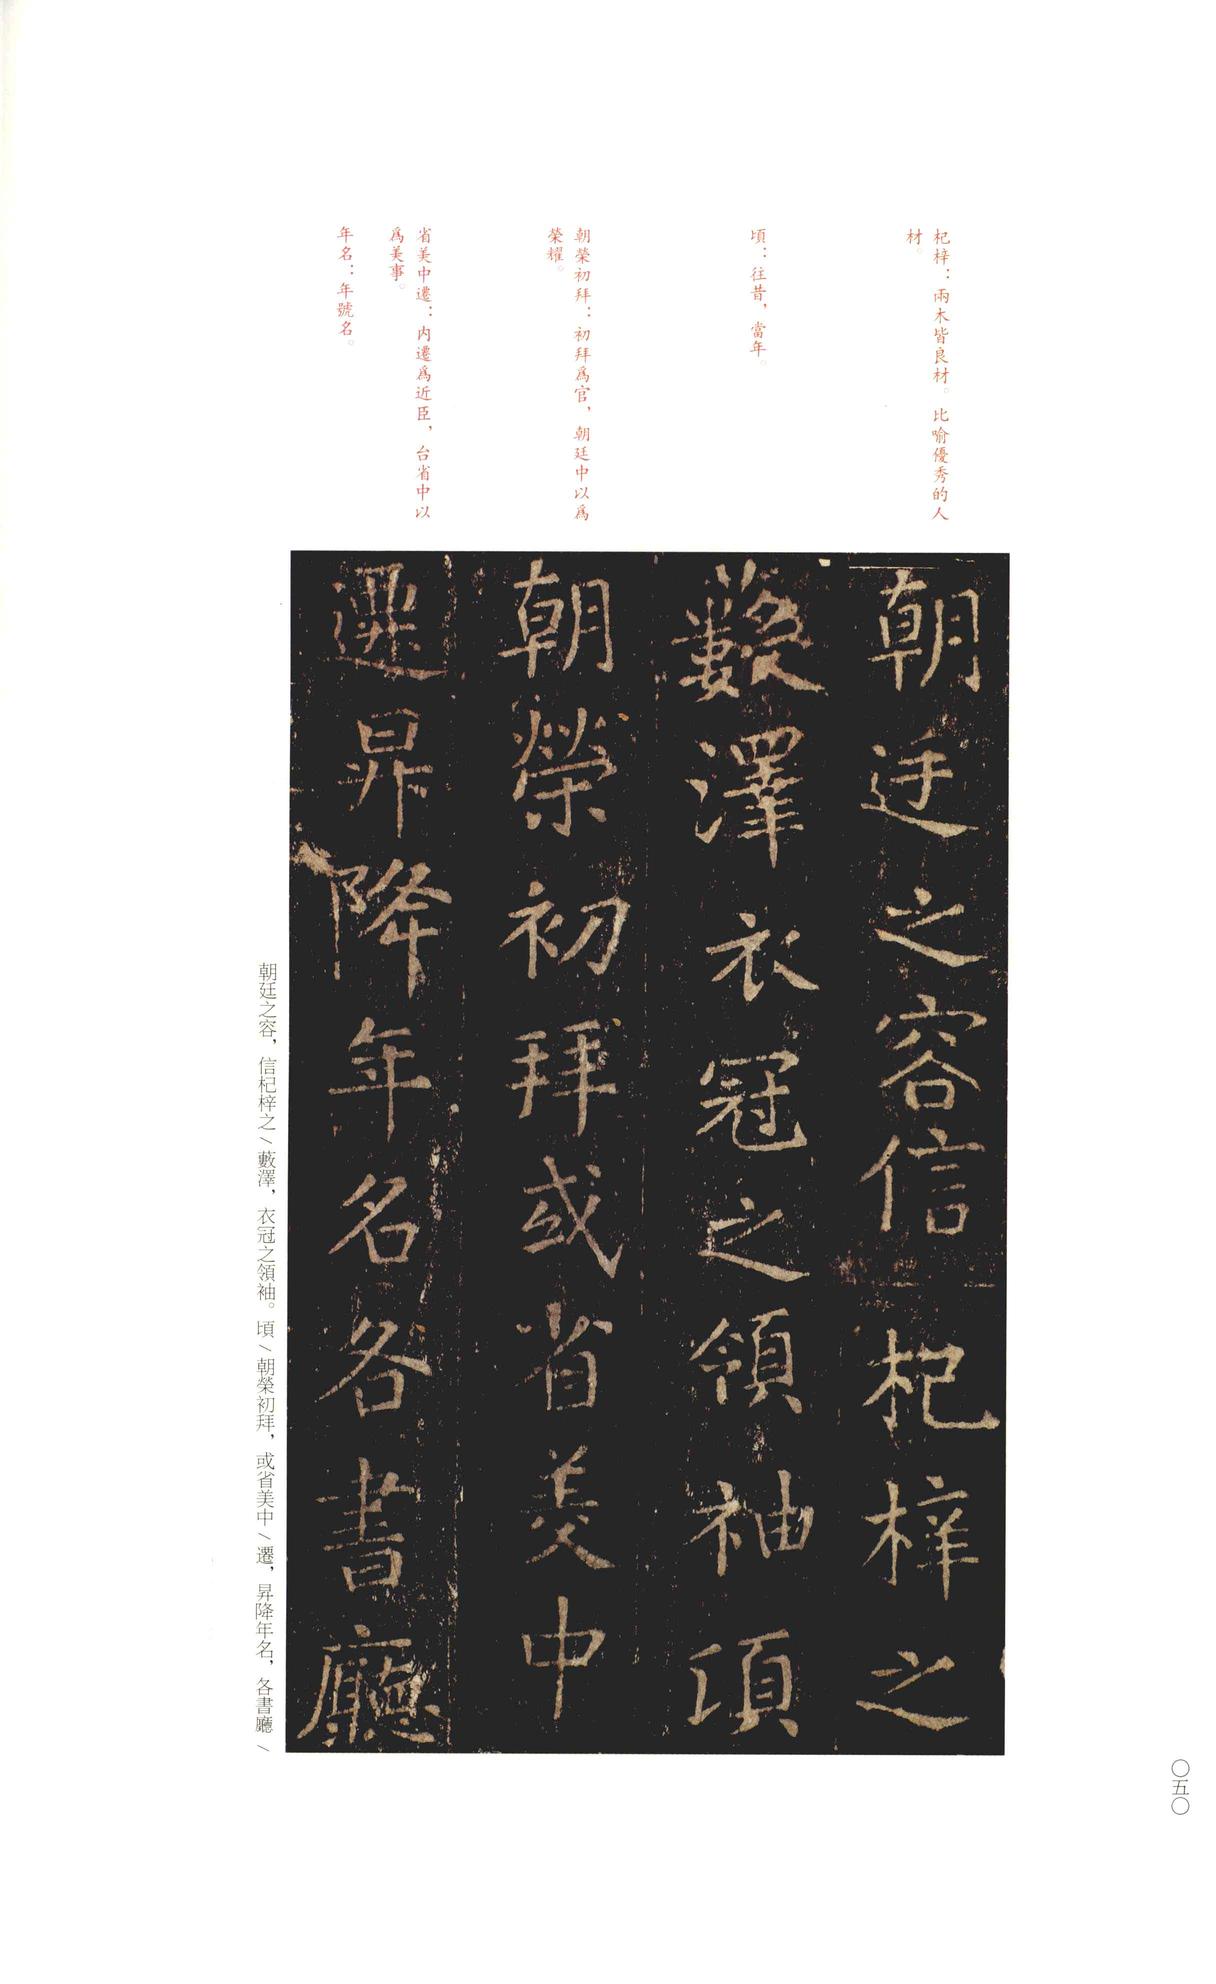 杞梓：兩木皆良材。比喻優秀的人
材。
頃：往昔，當年。
朝榮初拜：初拜爲官，朝廷中以爲
榮耀。
省美中遷：内遷爲近臣，台省中以
爲美事。
年名：年號名。
朝廷之容信杞梓之
藪澤衣冠之領袖頃
朝榮初拜或省美中
遷昇降年名各書廳
朝廷之容，信杞梓之/藪澤，衣冠之領袖。頃/朝榮初拜，或省美中/遷，昇降年名，各書廳/
〇五〇